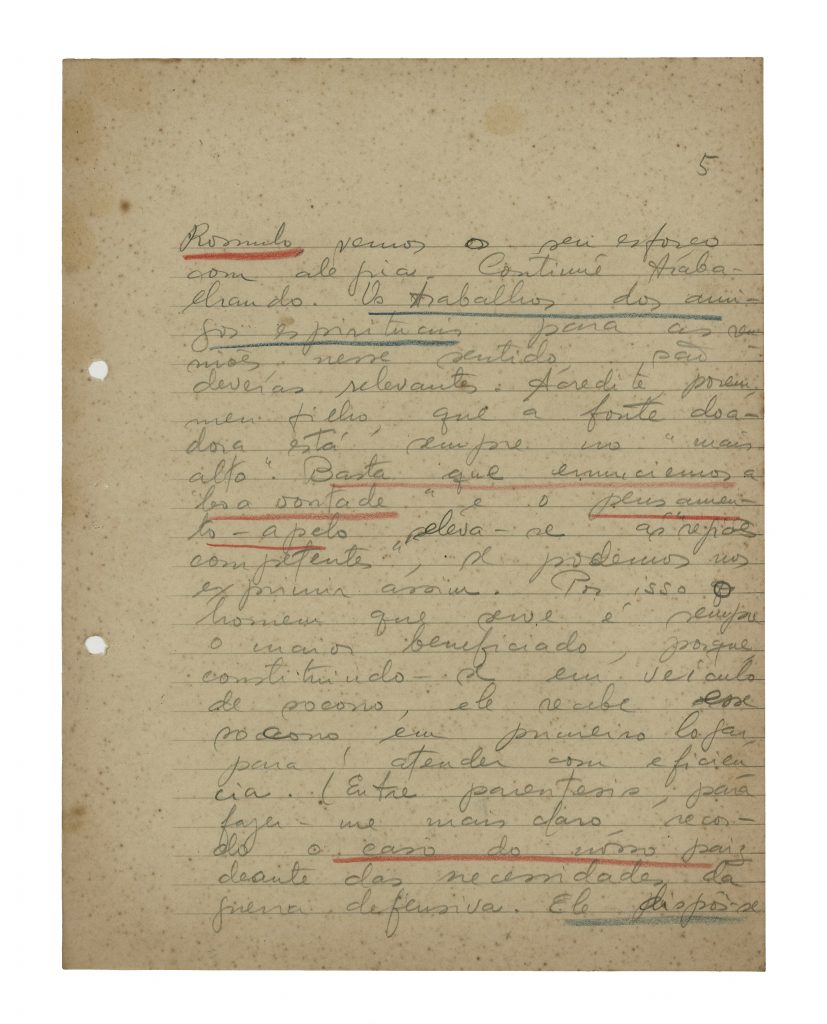 5
Romulo vemos o seu esforço
com alegria. Continúe traba-
lhando. Os trabalhos dos ami-
gos espirituais para as reu-
niões nesse sentido são
devéras relevantes. Acredite, porem,
meu filho, que a fonte doa-
dora está sempre no "mais
alto". Basta que enunciemos a
bôa vontade " e o pensamen-
to-apelo eleva-se ás "regiões
competentes", se podemos nos
exprimir assim. Por isso o
homem que serve é sempre
o maior beneficiado, porque
constituindo-se em veículo
de socorro, ele recebe esse
socorro em primeiro logar
para atender com eficien-
cia. (Entre parentesis, para
fazer-me mais claro, recor-
do o caso do nósso paiz
deante das necessidades da
guerra defensiva. Ele dispôs-se